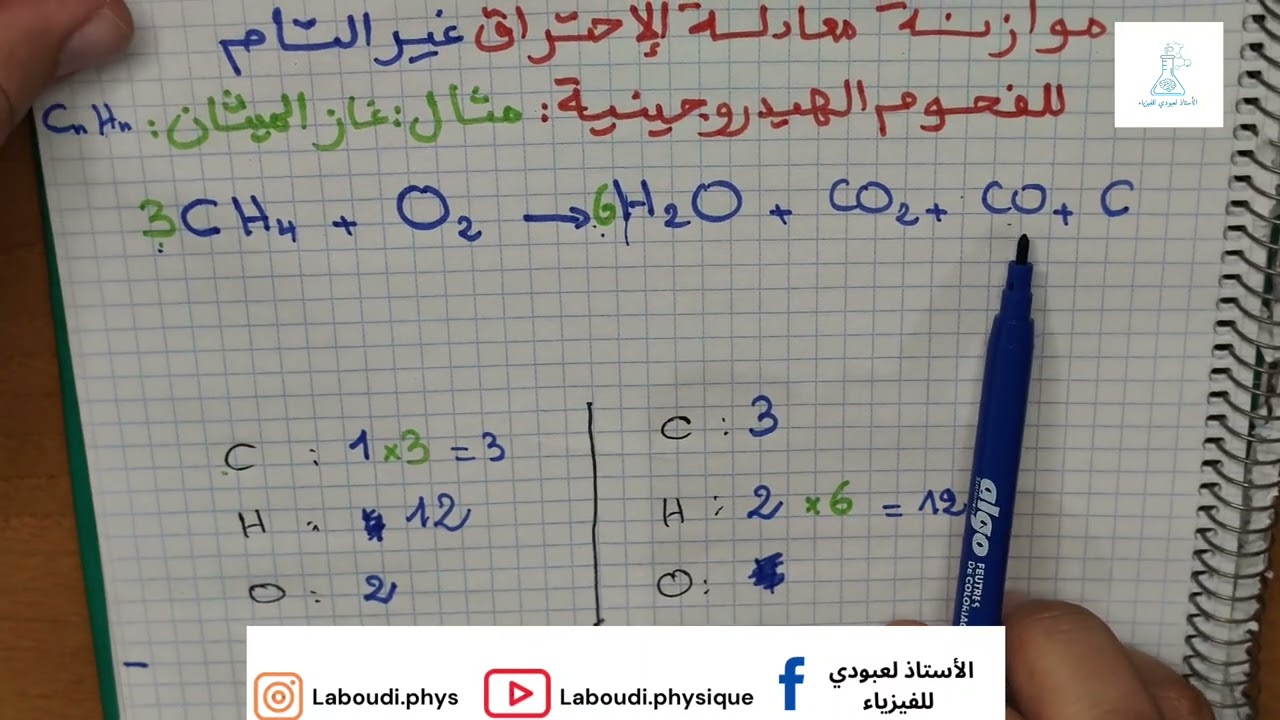 موازنة معادلة الإحتراق غير التام
للفحوم الهيدروجينية: مثال: غاز الميثان: CnHn
3CH4 + O2 → 6H2O + CO2 + CO + C
C : 1 × 3 = 3
H : 12
O : 2
C : 3
H : 2 × 6 = 12
O :
algo
FEUTRES
DE COLORIAG
الأستاذ لعبودي للفيزياء
Laboudi.phys
Laboudi.physique
الأستاذ لعبودي
للفيزياء